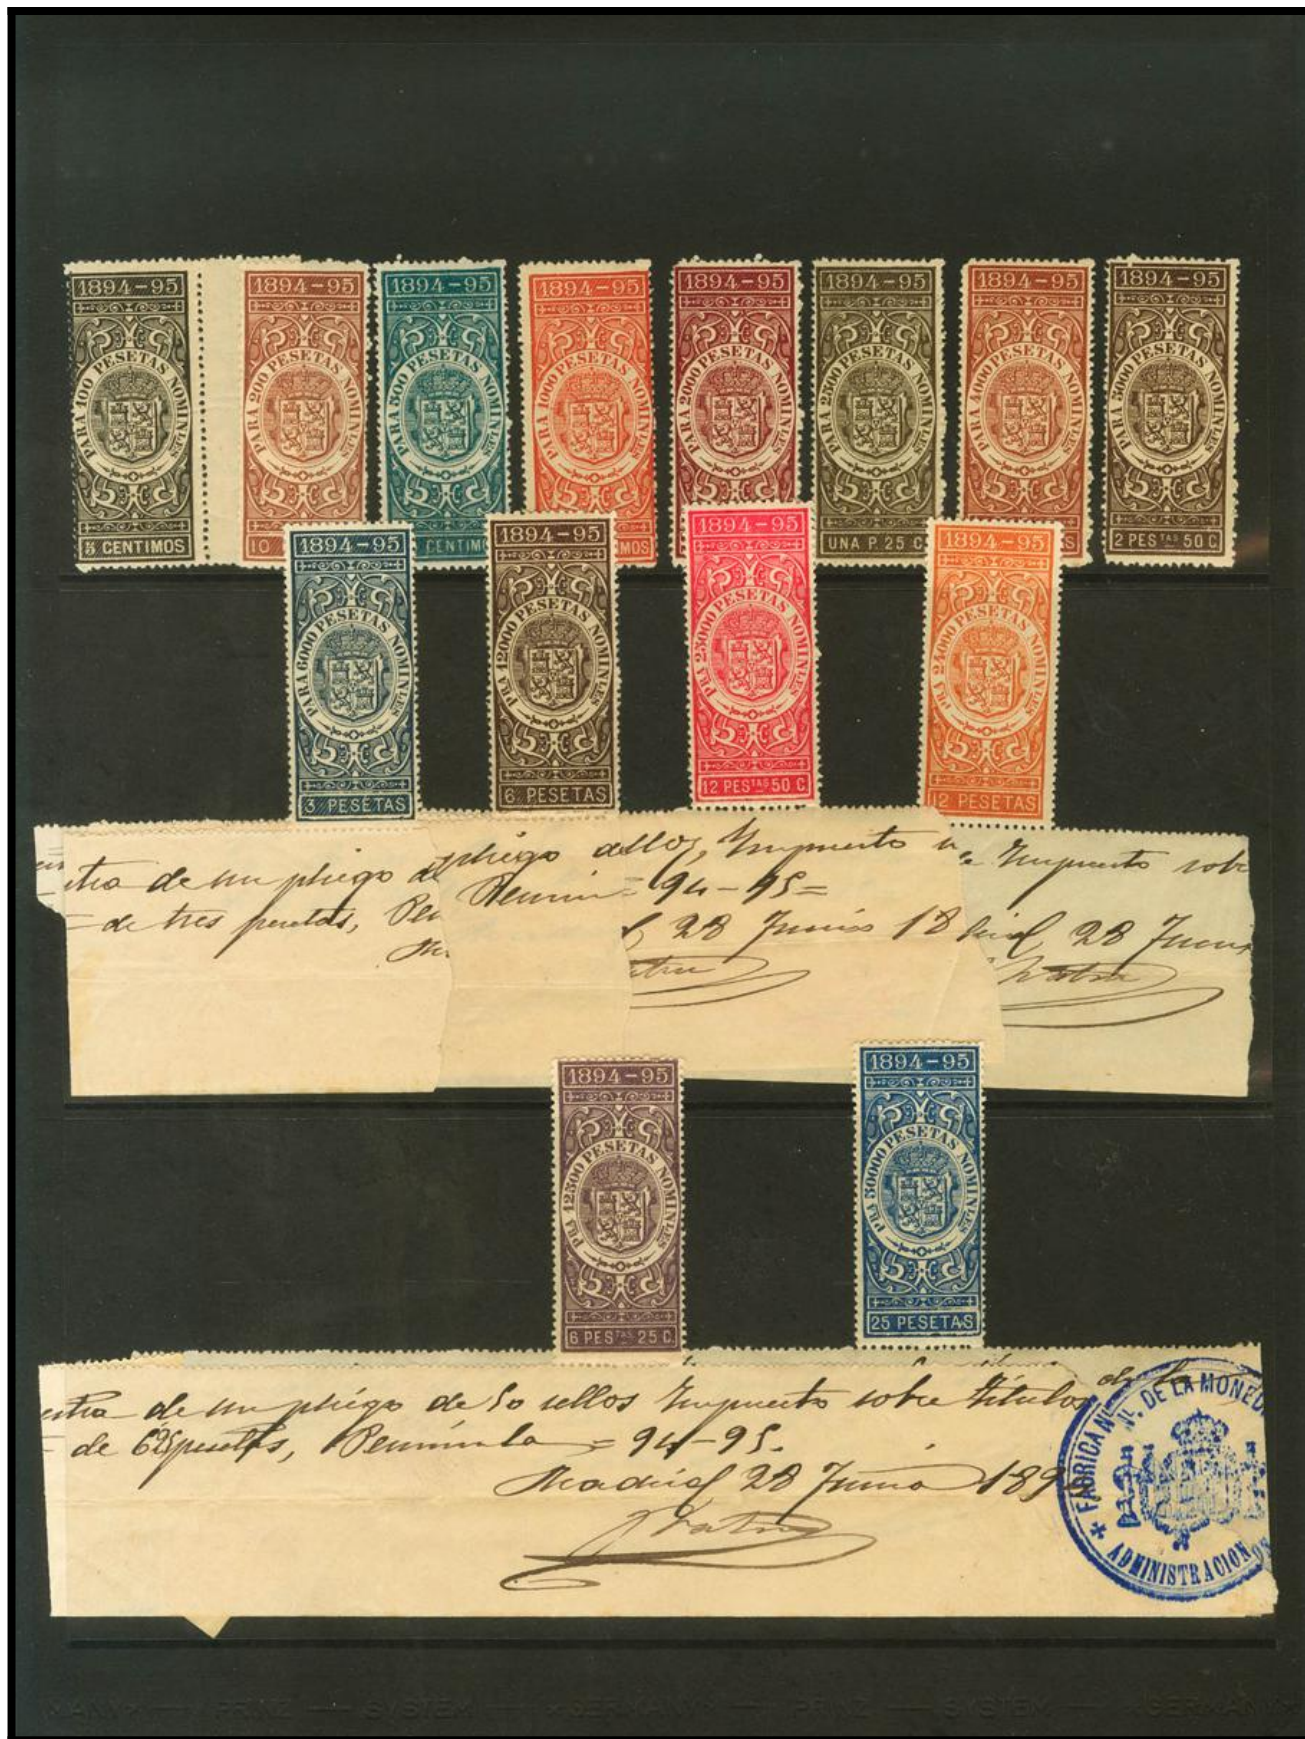 1894-95
PARA 100 PESETAS NOMINLES
5 CENTIMOS
1894-95
PARA 200 PESETAS NOMINLES
10
1894-95
PARA 500 PESETAS NOMINLES
CENTIM
1894-95
PARA 1000 PESETAS NOMINLES
MOS
1894-95
PARA 2000 PESETAS NOMINLES
1894-95
PARA 2500 PESETAS NOMINLES
UNA P. 25 C
1894-95
PARA 4000 PESETAS NOMINLES
1894-95
PARA 5000 PESETAS NOMINLES
2 PESTAS 50 C
1894-95
PARA 6000 PESETAS NOMINLES
3 PESETAS
1894-95
PRA 12000 PESETAS NOMINLES
6 PESETAS
1894-95
PRA 25000 PESETAS NOMINLES
12 PESTAS 50 C
1894-95
PRA 24000 PESETAS NOMINLES
12 PESETAS
stra de un pliego d
de tres pesetas, Pen
pliego Impuesto
94-95=
28 Junio 18
Impuesto sobr
28 Juni
1894-95
PRA 12500 PESETAS NOMINLES
6 PESTAS 25 C.
1894-95
PRA 50000 PESETAS NOMINLES
25 PESETAS
stra de un pliego de 50 sellos Impuesto sobre títulos
de pesetas, Península = 94-95.
Madrid 28 Junio 189
FABRICA NL. DE LA MONED
ADMINISTRACION
PRINZ SYSTEM GERMANY PRINZ SYSTEM GERMANY